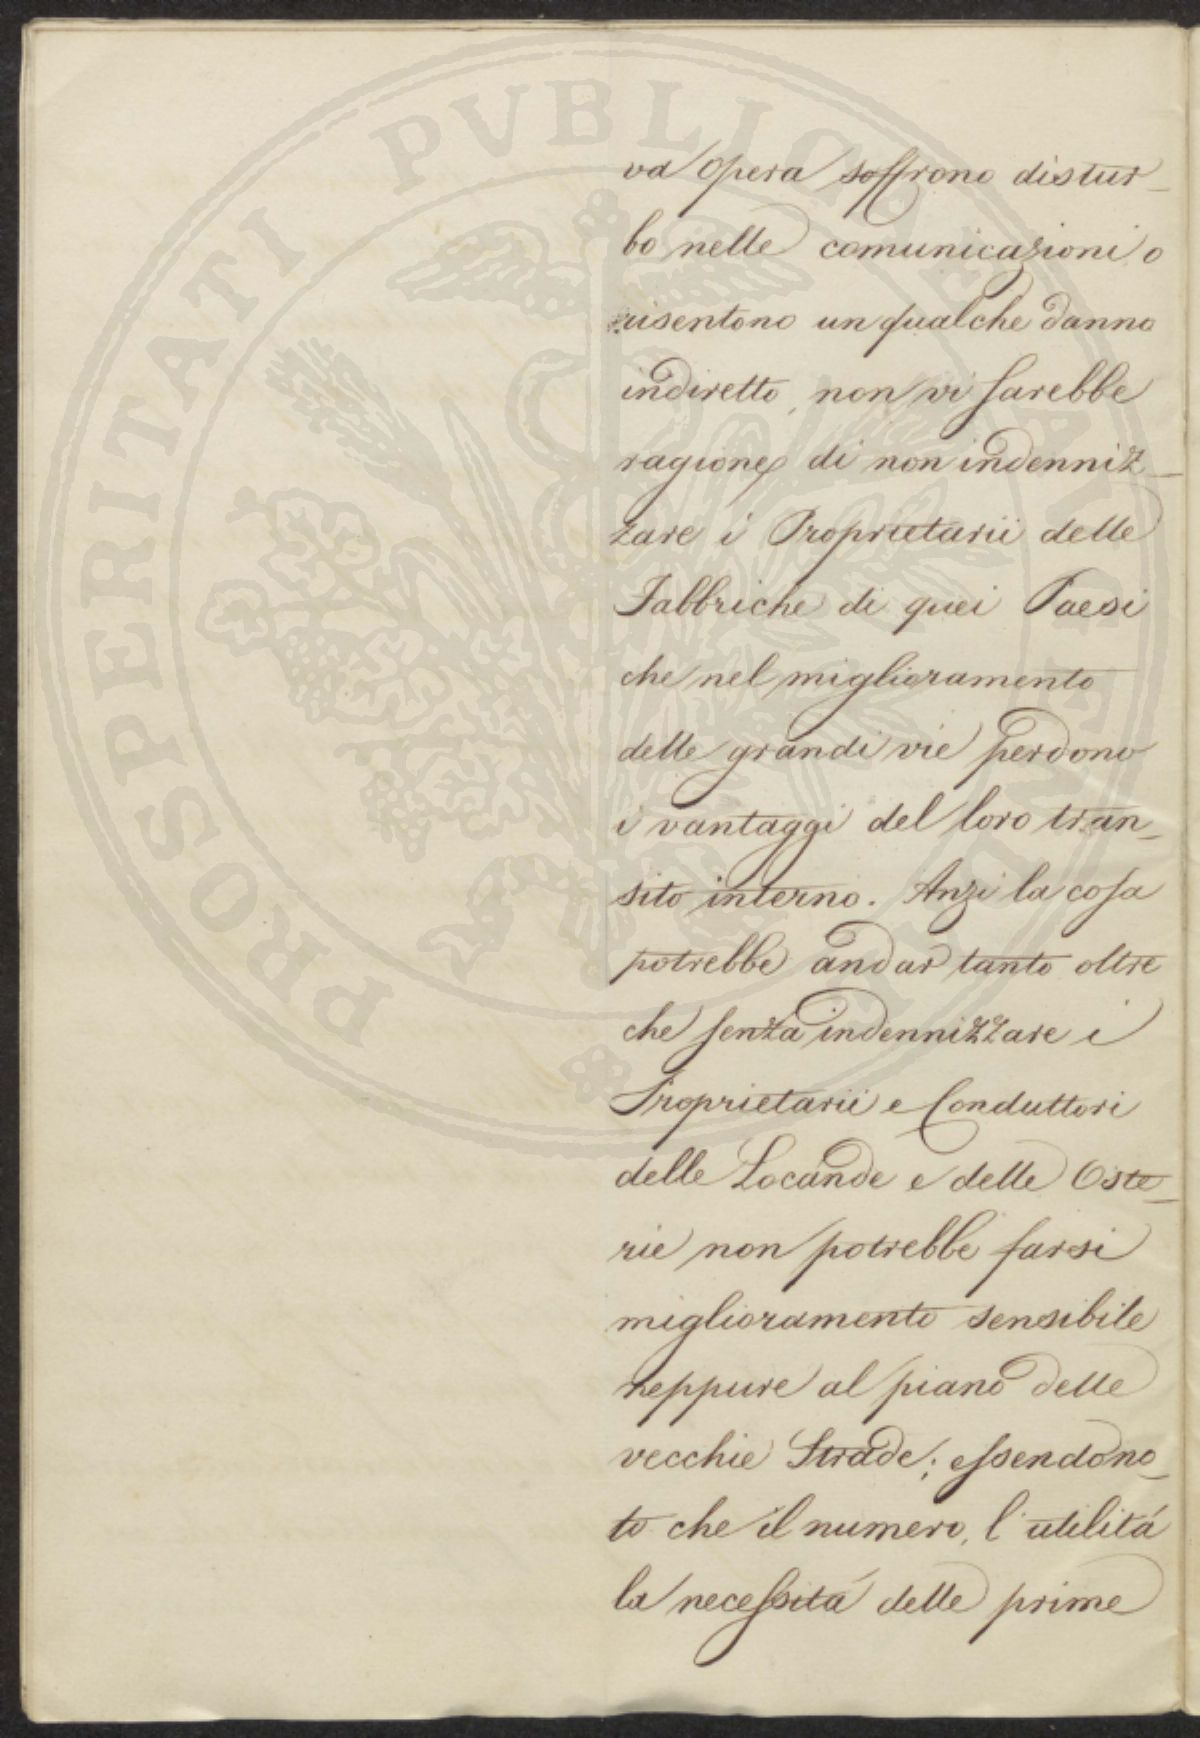 PROSPERITATI PUBLICAE AUGENDAE
va Opera soffrono distur-
bo nelle comunicazioni, o
risentono un qualche danno
indiretto, non vi sarebbe
ragione di non indenniz-
zare i Proprietarii delle
Fabbriche di quei Paesi
che nel miglioramento
delle grandi vie perdono
i vantaggi del loro tran-
sito interno. Anzi la cosa
potrebbe andar tanto oltre
che senza indennizzare i
Proprietarii e Conduttori
delle Locande e delle Oste-
rie non potrebbe farsi
miglioramento sensibile
neppure al piano delle
vecchie Strade; essendo no-
to che il numero, l'utilitá
la necessitá delle prime